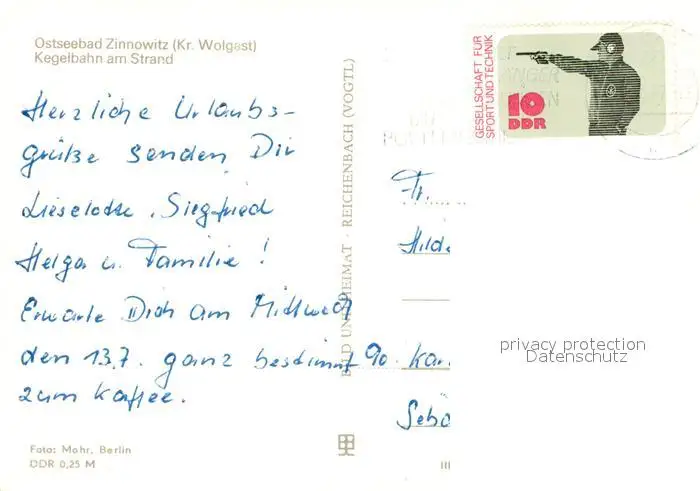 Ostseebad Zinnowitz (Kr. Wolgast)
Kegelbahn am Strand
Herzliche Urlaubs-
grüße senden Dir
Lieselotte, Siegfried
Helga u. Familie!
Erwarte Dich am Mittwoch
den 13.7. ganz bestimmt
zum Kaffee.
Foto: Mohr, Berlin
DDR 0,25 M
BILD UND HEIMAT · REICHENBACH (VOGTL)
GESELLSCHAFT FÜR
SPORT UND TECHNIK
10
DDR
Fr.
Hilde
90
Seb
III
privacy protection
Datenschutz